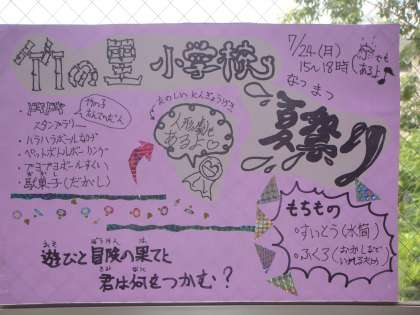 竹の里小学校
7/24(月)
15〜18時
なつ まつ
夏祭り
でも
あるよ
スタンプラリー
・ハラハラボールなげ
・ペットボトルボーリング
・プヨプヨボールすくい
・駄菓子(だがし)
人形劇も
あるよ♡
もちもの
・すいとう(水筒)
・ふくろ(おかしなど
いれるため)
あそ ぼうけん は
遊びと冒険の果てに
きみ なに
君は何をつかむ?